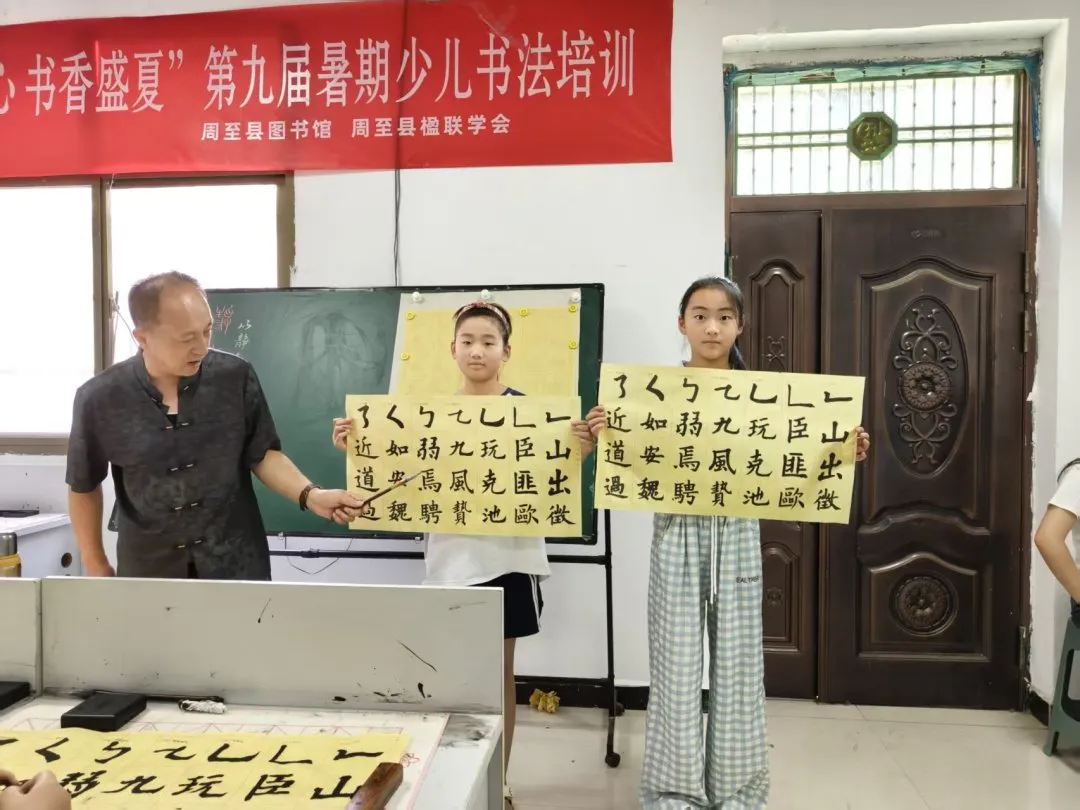 书香盛夏” 第九届暑期少儿书法培训
周至县图书馆 周至县楹联学会
以静
山出徵
臣匪歐
玩克池
九風贄
弱焉騁
如安魏
近道過
山出徵
臣匪歐
玩克池
九風贄
弱焉騁
如安魏
近道過
山
臣
玩
九
弱